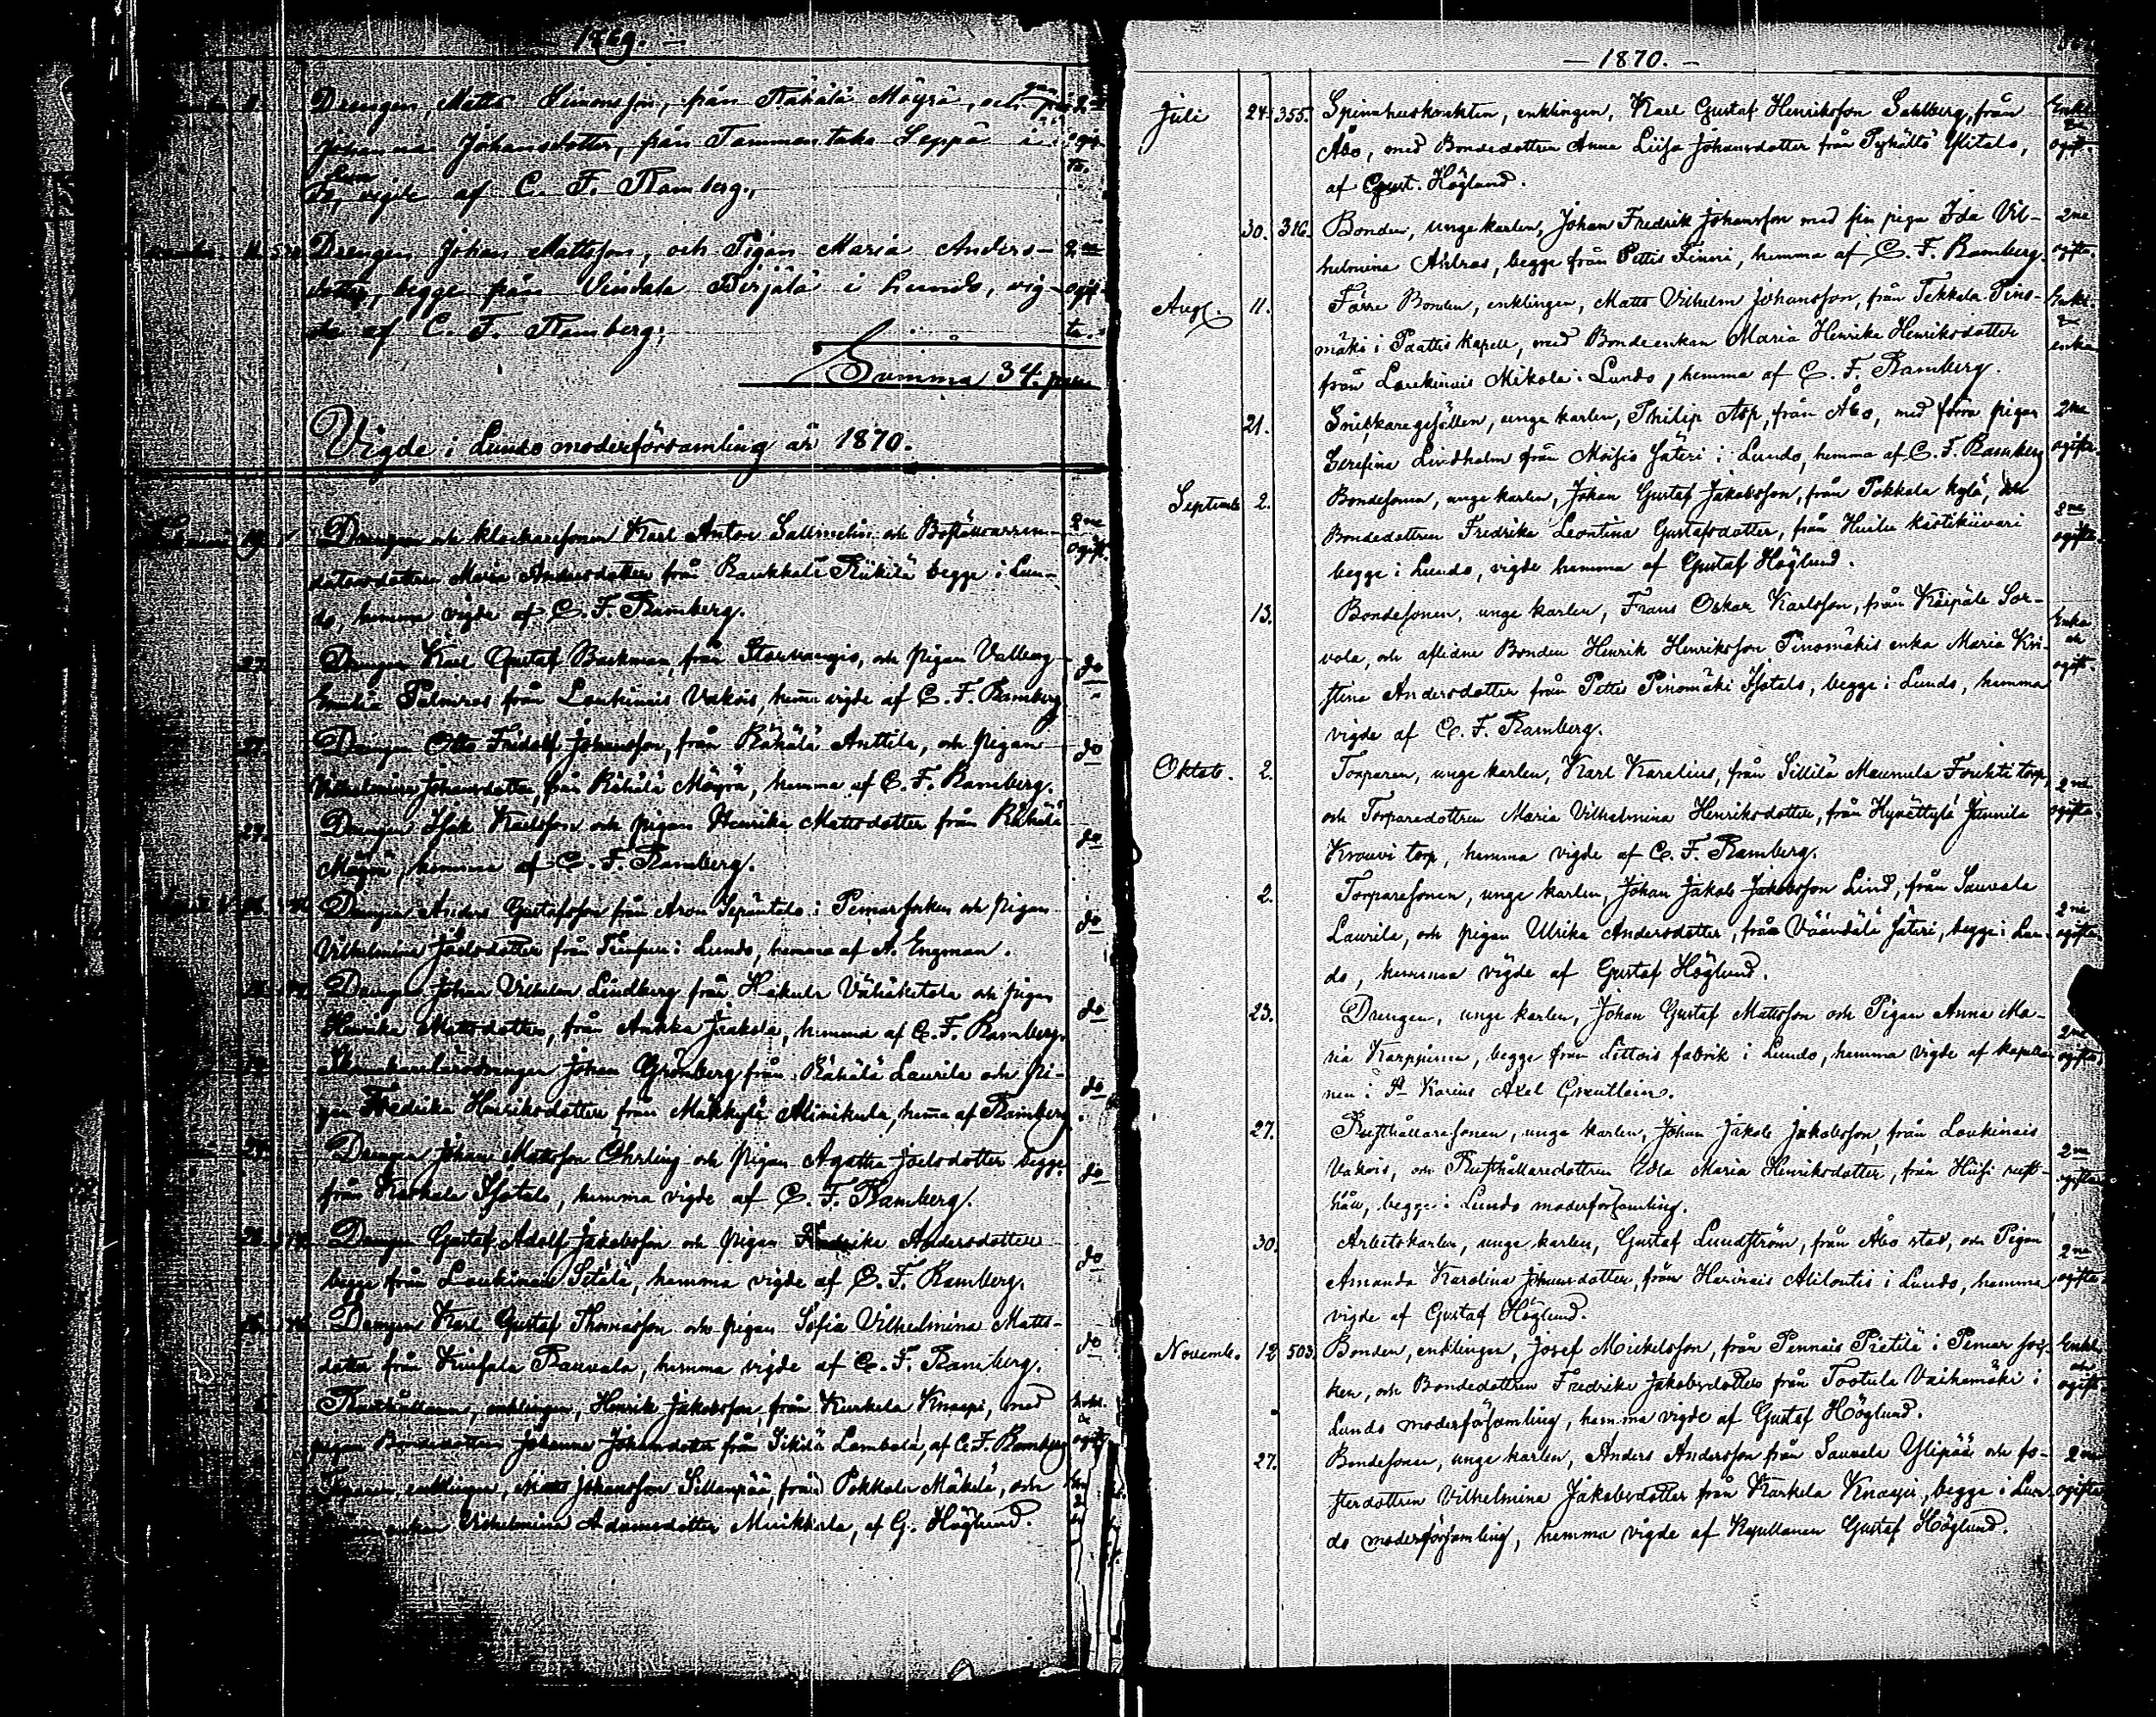 1869. —
Drengen, Matts Simonsson, från Rähälä Mäyrä, och pi- 2ne
gan
Johanna Johansdotter, från Tammentaka Seppä i ogif-
Lun
do, vigde af C. F. Ramberg., ta.
Drengen Johan Mattsson, och Pigan Maria Anders- 2ne
dotter, begge från Vindala Pirjälä i Lundo, vig- ogif-
de af C. F. Ramberg; ta.
Summa 34. par
Vigde i Lundo moderförsamling år 1870.
Drengen och klockaresonen Karl Anton Sallmelin och 2ne
datorsdottren Maria Andersdotter från Raukkala Riikilä begge i Lun- ogift.
do, hemma vigde af C. F. Ramberg.
27. Drengen Karl Gustaf Backman, från och pigan Valborg do
Emilia Palmros från Loukinais Vakois, hemma vigde af C. F. Ramberg
27. Drengen Otto Fridolf Johansson, från Rähälä Anttila, och pigan do
Vilhelmina Johansdotter, från Rähälä Mäyrä, hemma af C. F. Ramberg.
27. Drengen Isak Karlsson och pigan Henrika Mattsdotter från Rähälä do
Mäyrä, hemma af C. F. Ramberg.
Drengen Anders Gustafsson från Aron i Pemar socken och pigan do
Vilhelmina Joelsdotter från i Lundo, hemma af A. Engman.
Drengen Johan Vilhelm Lindberg från Hakula Vähäketola och pigan do
Henrika Mattsdotter, från Ankka Jaakola, hemma af C. F. Ramberg.
Johan Grönberg från Rähälä Laurila och pi- do
gan Fredrika Henriksdotter från Mäkkylä Alinikula, hemma af Ramberg.
Drengen Johan Mattsson Öhrling och pigan Agatha Joelsdotter begge do
från Karkala Isotalo, hemma vigde af C. F. Ramberg.
Drengen Gustaf Adolf Jakobsson och pigan Fredrika Andersdotter do
begge från Loukinais Setälä, hemma vigde af C. F. Ramberg.
Drengen Karl Gustaf Thomasson och pigan Sofia Vilhelmina Matts- do
dotter från Rauvala, hemma vigde af C. F. Ramberg.
enklingen, Henrik Jakobsson, från Kurkela Knaapi, med
pigan Bondedottren Johanna Johansdotter från Sikilä Lambola, af C. F. Ramberg ogift
enklingen, Matts Johansson Sillanpää, från Pokkola Mäkelä, och
enkan Vilhelmina Adamsdotter Muikkola, af G. Höglund.
— 1870. —
Juli 24. 355. Spinnhusknekten, enklingen, Karl Gustaf Henriksson Sahlberg, från Enkl.
Åbo, med Bondedottren Anna Lisa Johansdotter från Pyhältö Ylitalo, ogift.
af Gust. Höglund.
30. 316. Bonden, unge karlen, Johan Fredrik Johansson med sin piga Ida Vil- 2ne
helmina Ahlros, begge från Pettis Finni, hemma af C. F. Ramberg. ogifta.
Aug. 11. Förre Bonden, enklingen, Matts Vilhelm Johansson, från Tekkala Pino- Enkl.
mäki i Paattis Kapell, med Bondeenkan Maria Henrika Henriksdotter enka
från Loukinais Mikola i Lundo, hemma af C. F. Ramberg.
21. Snickaregesällen, unge karlen, Philip Asp, från Åbo, med förra pigan 2ne
Serafina Lindholm från Moisio Säteri i Lundo, hemma af C. F. Ramberg ogifta.
Septemb. 2. Bondesonen, unge karlen, Johan Gustaf Jakobsson, från Pokkola kylä, och
Bondedottren Fredrika Leontina Gustafsdotter, från 2ne
begge i Lundo, vigde hemma af Gustaf Höglund. ogifta.
13. Bondesonen, unge karlen, Frans Oskar Karlsson, från Käipälä Sor- Enka
vola, och aflidne Bonden Henrik Henriksson Pinomäkis enka Maria Kri- och
stina Andersdotter från Pettis Pinomäki Isotalo, begge i Lundo, hemma ogift
vigde af C. F. Ramberg.
Oktob. 2. Torparen, unge karlen, Karl Karelius, från Sillilä Maunula torp,
och Torparedottren Maria Vilhelmina Henriksdotter, från Junnila 2ne ogifta.
Krouvi torp, hemma vigde af C. F. Ramberg.
2. Torparesonen, unge karlen, Johan Jakob Jakobsson Lind, från Sauvala
Laurila, och pigan Ulrika Andersdotter, från Väändälä Säteri, begge i Lun- 2ne ogifta
do, hemma vigde af Gustaf Höglund.
23. Drengen, unge karlen, Johan Gustaf Mattsson och Pigan Anna Ma-
ria Karppinen, begge från Littois fabrik i Lundo, hemma vigde af kapella- 2ne ogifta
nen i St Karins Axel Grentlein.
27. Rusthållaresonen, unge karlen, Johan Jakob Jakobsson, från Loukinais
Vakois, och Rusthållaredottren Eva Maria Henriksdotter, från Hiisi rust- 2ne
håll, begge i Lundo moderförsamling. ogifta
30. Arbetskarlen, unge karlen, Gustaf Lundström, från Åbo stad, och Pigan 2ne
Amanda Karolina Johansdotter, från Harvois Alilontis i Lundo, hemma ogifta.
vigde af Gustaf Höglund.
Novemb. 12. 503. Bonden, enklingen, Josef Mickelsson, från Pennais Pietilä i Pemar soc- Enkl.
ken, och Bondedottren Fredrika Jakobsdotter från Tootula Vaihemäki i och ogift
Lundo moderförsamling, hemma vigde af Gustaf Höglund.
27. Bondesonen, unge karlen, Anders Andersson från Sauvala Ylipää och fo- 2ne
sterdottren Vilhelmina Jakobsdotter från Kärkelä Knaapi, begge i Lun- ogifta
do moderförsamling, hemma vigde af Kapellanen Gustaf Höglund.